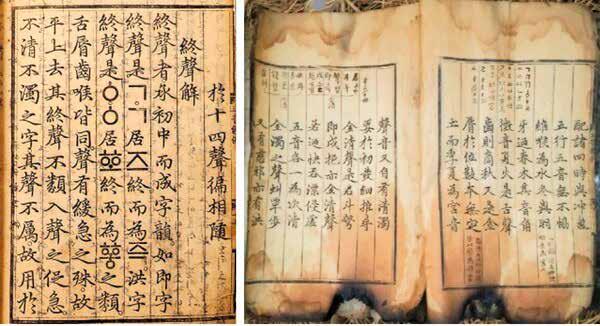 於十四聲徧相隨
終聲解
終聲者承初中而成字韻如即字
終聲是ㄱㄱ居즈終而為즉洪字
終聲是ㆁㆁ居ᅘᅩ終而為ᅘᅩᇰ之類
舌脣齒喉皆同聲有緩急之殊故
平上去其終聲不類入聲之促急
不清不濁之字其聲不厲故用於
配諸四時與冲氣
五行五音無不協
維喉為水冬與羽
牙迺春木其音角
徵音夏火是舌聲
齒則商秋又是金
脣於位數本無定
土而季夏為宮音
聲音又自有清濁
要於初發細推尋
全清聲是君斗彆
即戌挹亦全清聲
若迺快吞漂侵虛
五音各一為次清
全濁之聲虯覃步
又有慈邪亦有洪